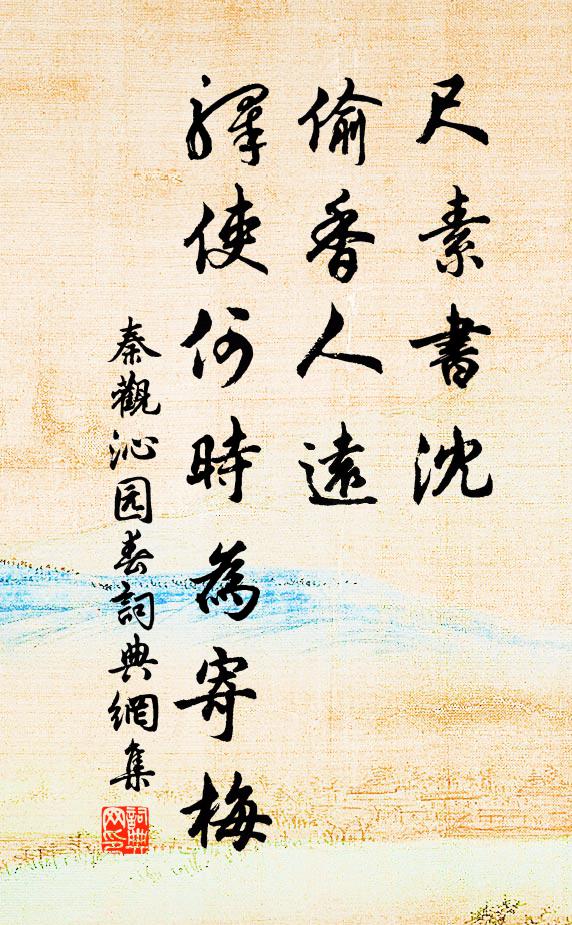 尺素書沈
偷香人遠
驛使何時為寄梅
秦觀沁园春詞典網集
詞典網印